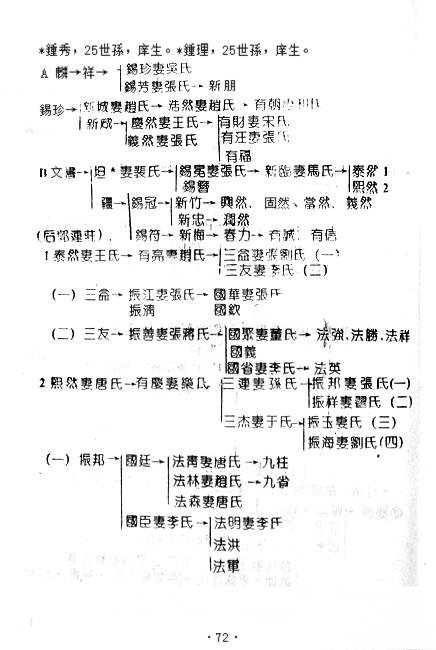 *鍾秀，25世孫，庠生。*鍾理，25世孫，庠生。
A 麟→祥→ 錫珍妻吳氏
錫芳妻張氏→ 新朋
錫珍→ 新城妻趙氏→ 浩然妻趙氏→ 有朝
新成→ 慶然妻王氏→ 有財妻宋氏
義然妻張氏 有汪妻張氏
有福
B文 → 坦*妻裴氏→ 錫冕妻張氏→ 新臨妻馬氏→ 泰然1
錫 熙然2
疆→ 錫冠→ 新竹→ 興然、固然、當然、義然
新忠→ 潤然
錫符→ 新梅→ 春力→ 有誠、有信
1泰然妻王氏→ 有亮妻趙氏→ 三俞妻張劉氏（一）
三友妻李氏（二）
（一）三俞→ 振江妻張氏→ 國華妻張氏
振清 國欽
（二）三友→ 振善妻張蔣氏→ 國眾妻董氏→ 法強、法勝、法祥
國義
國省妻李氏→ 法英
2熙然妻唐氏→ 有慶妻樂氏→ 三連妻孫氏→ 振邦妻張氏(一)
振祥妻翟氏（二）
三杰妻于氏→ 振玉妻氏（三）
振海妻劉氏(四)
（一）振邦→ 國廷→ 法青妻唐氏→九柱
法林妻趙氏→九省
法森妻唐氏
國臣妻李氏→ 法明妻李氏
法洪
法軍
·72·